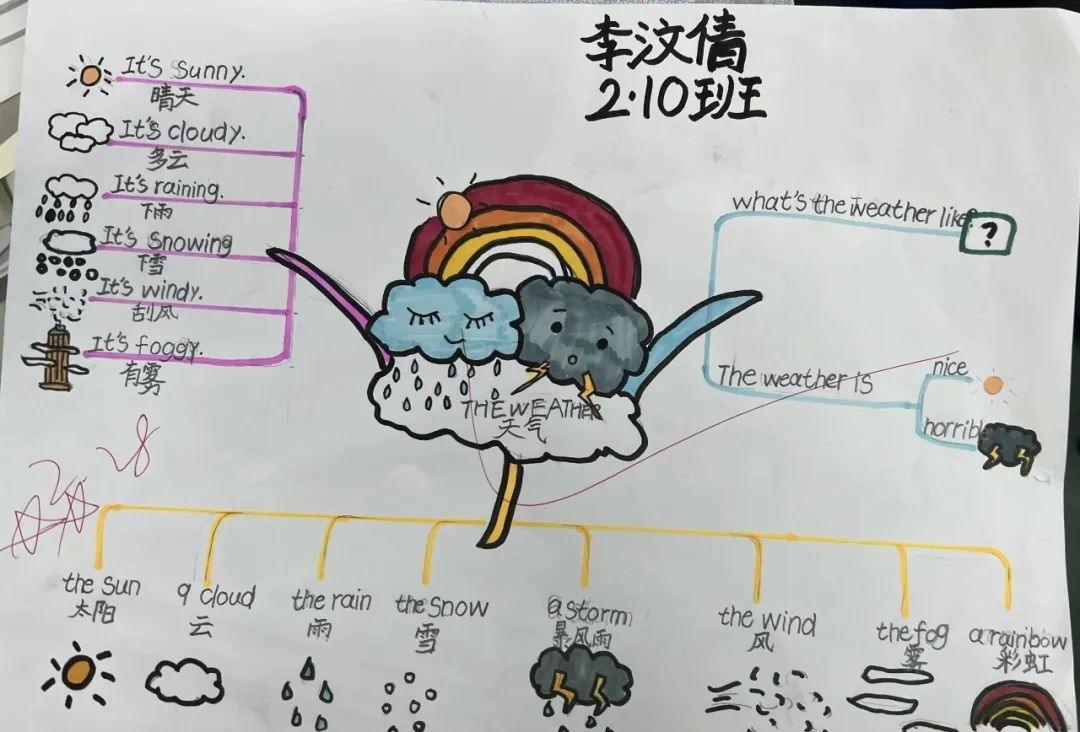 李汶倩
2·10班
It's sunny.
晴天
It's cloudy.
多云
It's raining.
下雨
It's snowing
下雪
It's windy.
刮风
It's foggy.
有雾
what's the weather like?
?
The weather is
nice
horrible
THE WEATHER
天气
the sun
太阳
a cloud
云
the rain
雨
the snow
雪
a storm
暴风雨
the wind
风
the fog
雾
a rainbow
彩虹